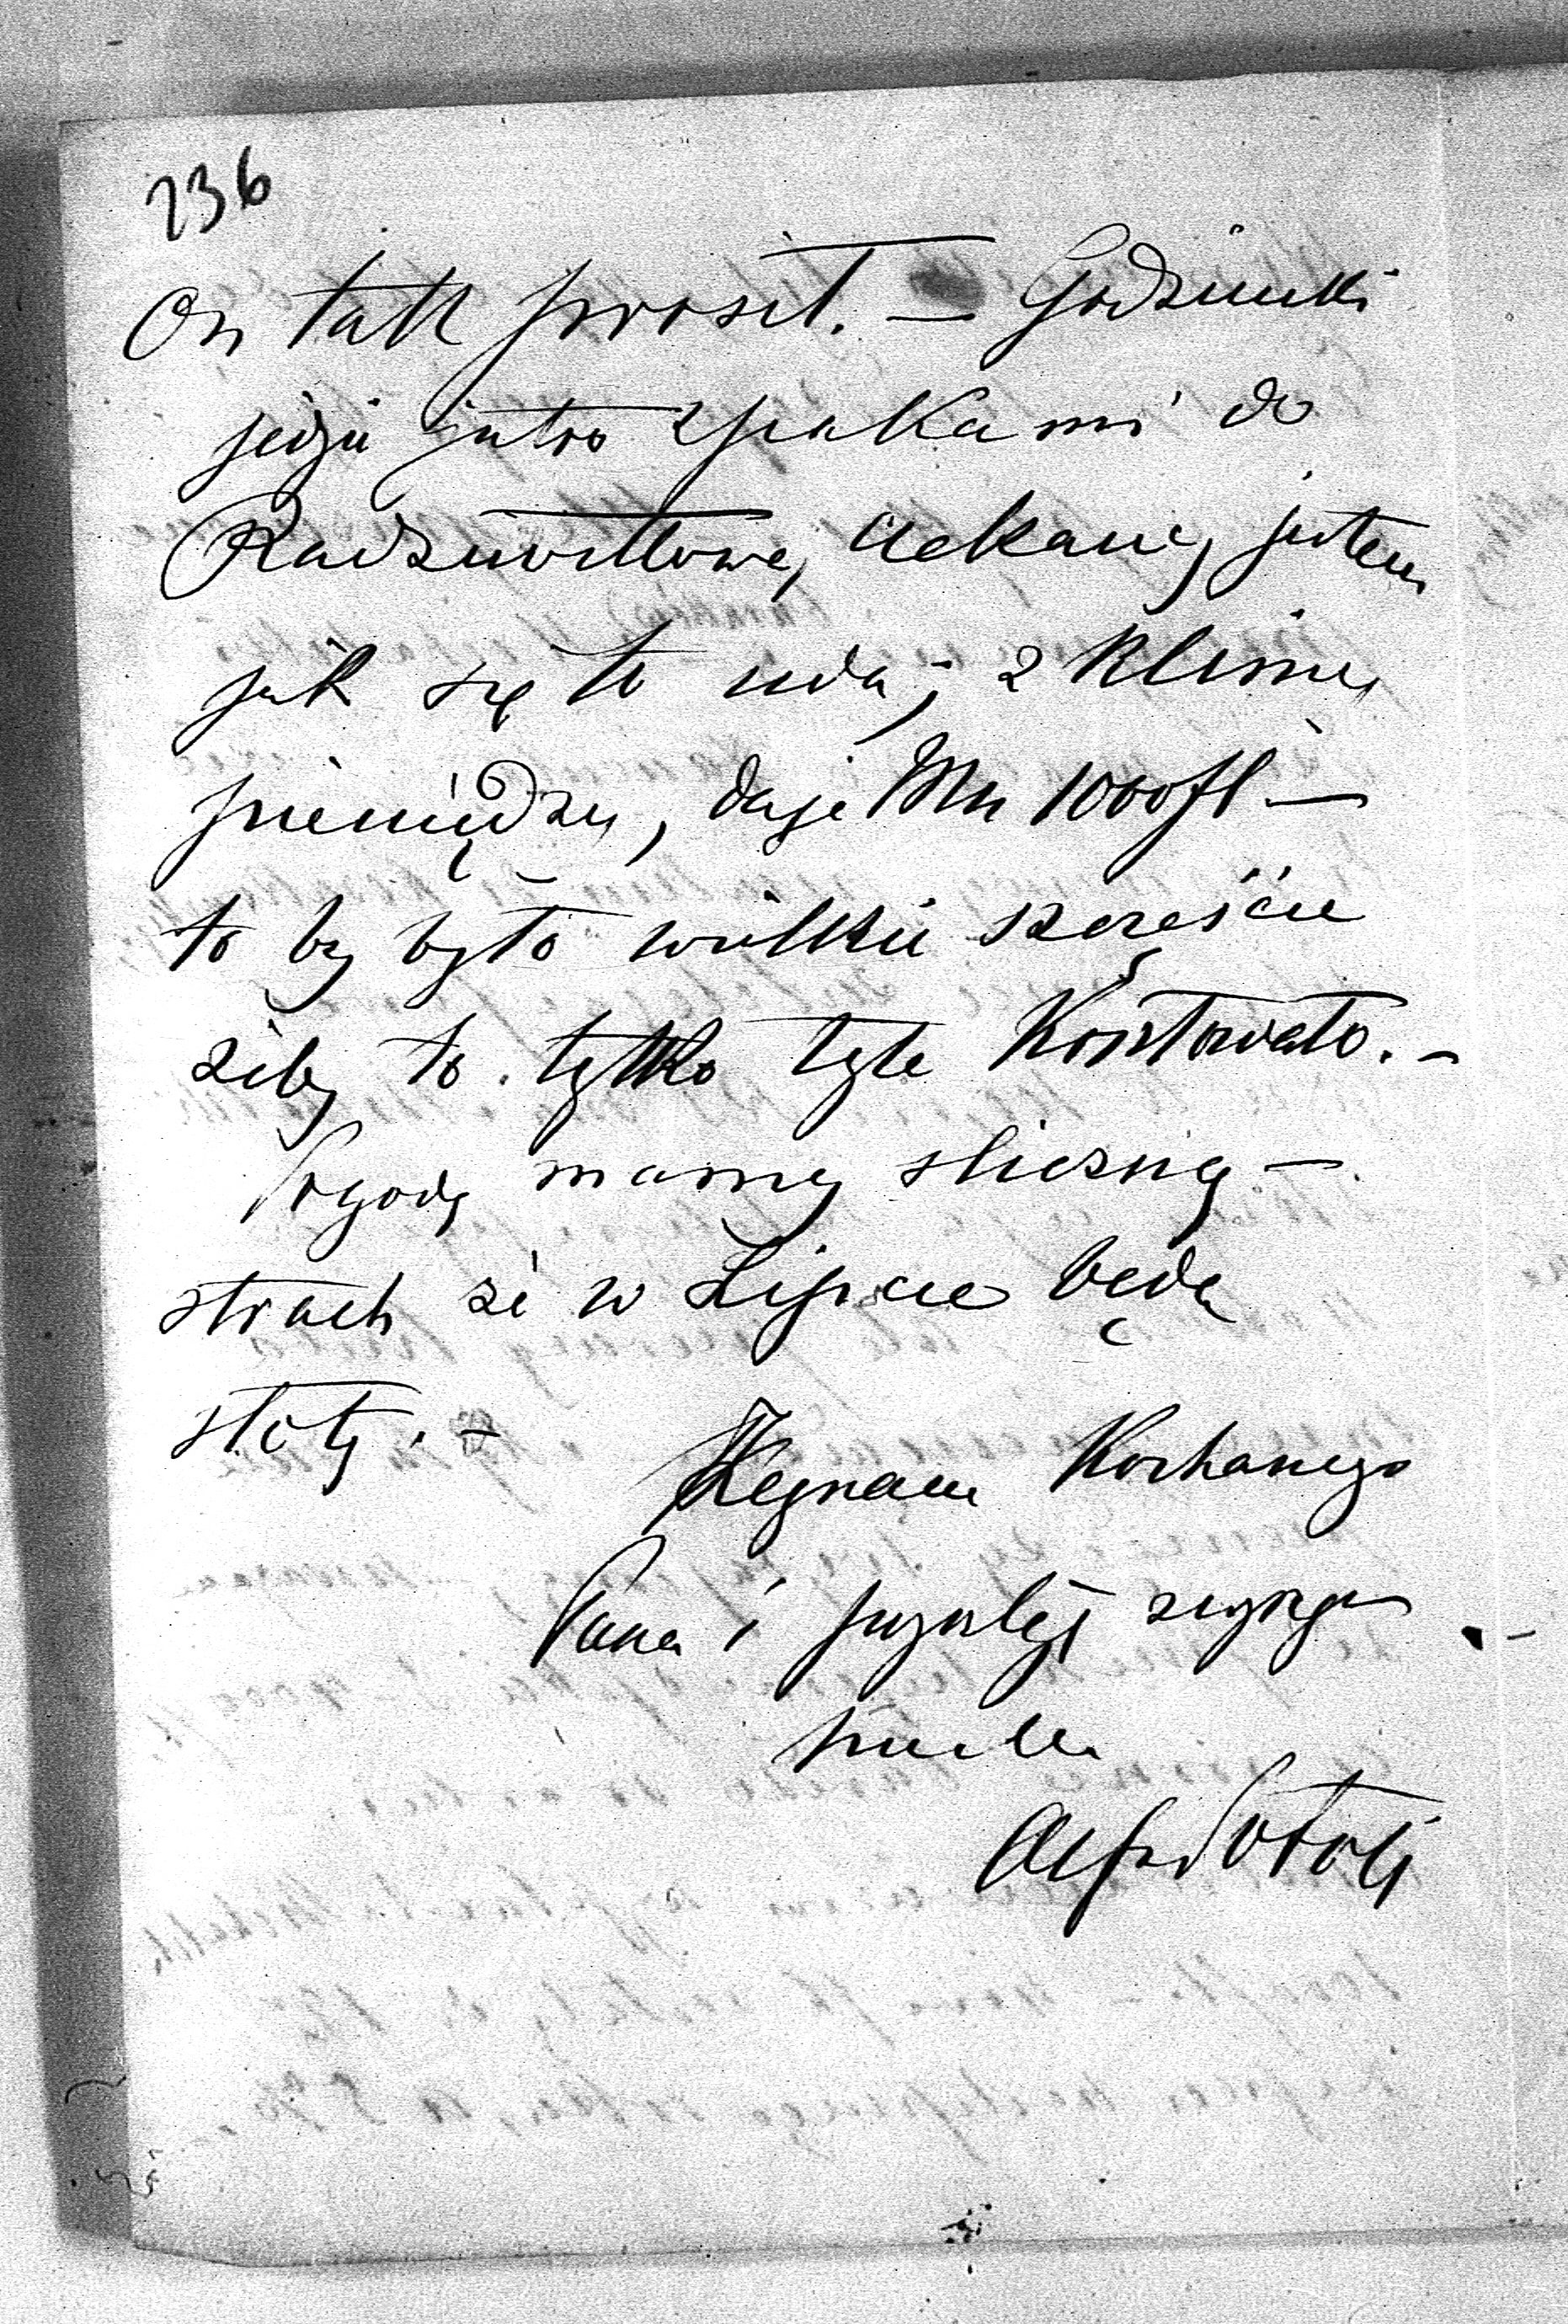 236
On tak prosił. — Godzimski
jedzie jutro z pakami do
Radziwiłłowa, ciekawy jestem
jak się to uda; z Klimą
pieniędzy, daje Mu 1000 fl —
to by było wielkie szczęście
żeby to tylko tyle Kosztowało. —
Pogodę mamy sliczną —
strach że w Lipcu będą
słoty. —
Żegnam Kochanego
Pana i
Alfred Potocki